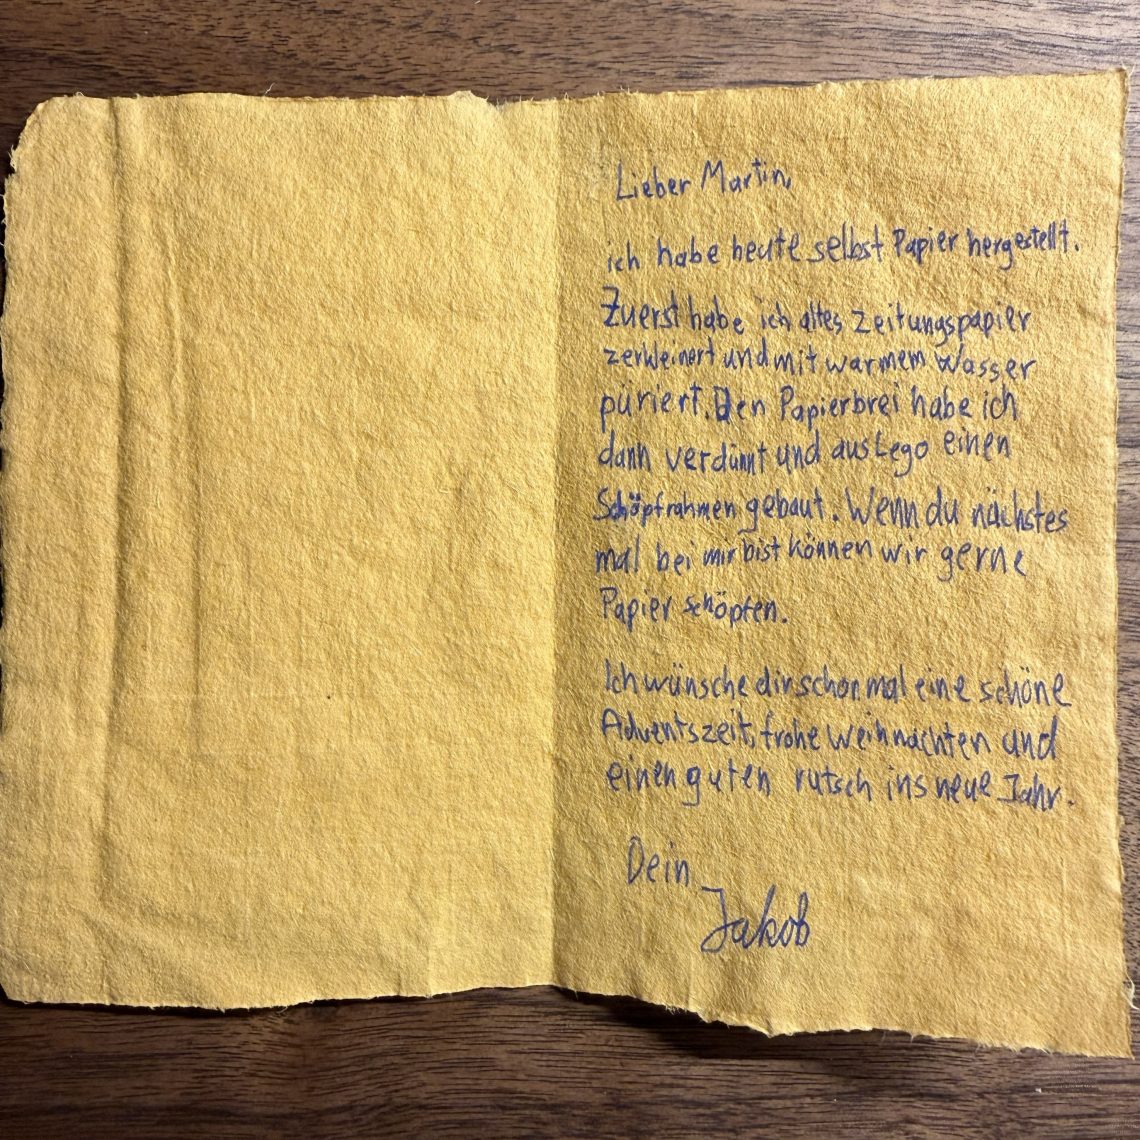 Lieber Martin,
ich habe heute selbst Papier hergestellt.
Zuerst habe ich altes Zeitungspapier
zerkleinert und mit warmem Wasser
püriert. Den Papierbrei habe ich
dann verdünnt und aus Lego einen
Schöpfrahmen gebaut. Wenn du nächstes
mal bei mir bist können wir gerne
Papier schöpfen.
Ich wünsche dir schon mal eine schöne
Adventszeit, frohe Weihnachten und
einen guten rutsch ins neue Jahr.
Dein
Jakob